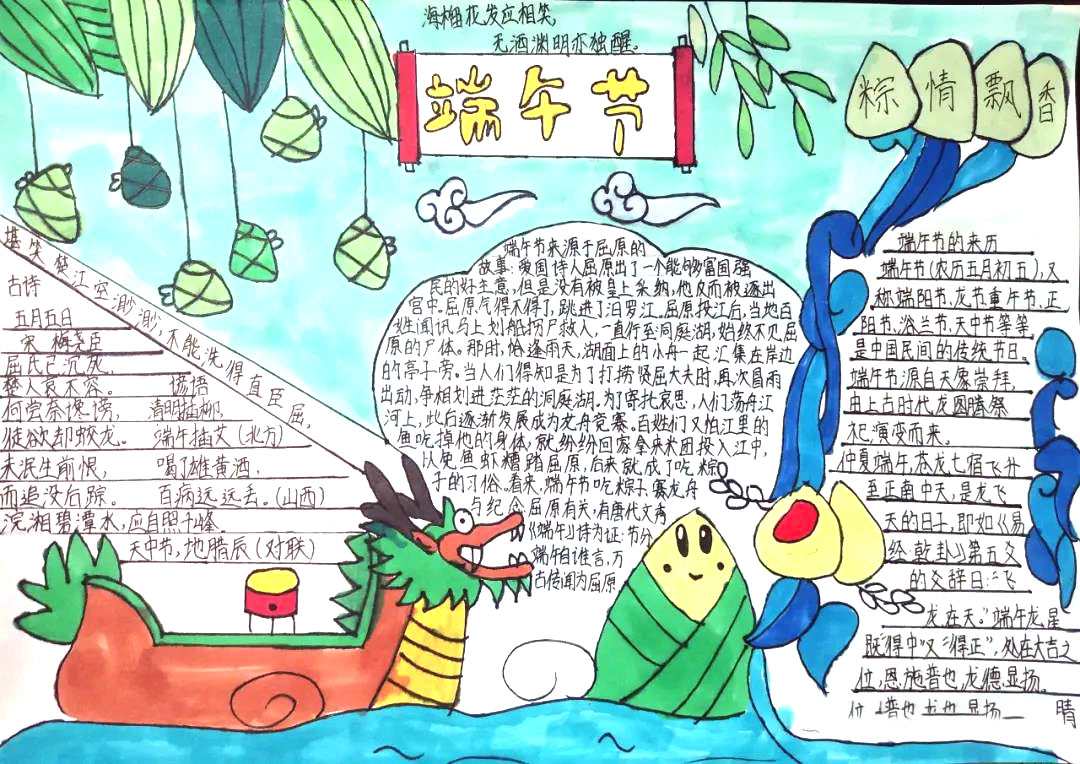 海榴花发应相笑,
无酒渊明亦独醒。
端午节
粽情飘香
堪笑楚江空渺渺,不能洗得直臣屈,
古诗
五月五日
宋 梅尧臣
屈氏已沉死,
楚人哀不容。
何尝奈谗谤,
徒欲却蛟龙。
未泯生前恨,
而追没后踪。
沅湘碧潭水,应自照千峰。
谚语
清明插柳,
端午插艾(北方)
喝了雄黄酒,
百病远远去。(山西)
天中节,地腊辰(对联)
端午节来源于屈原的
故事:爱国诗人屈原出了一个能够富国强
民的好主意,但是没有被皇上采纳,他反而被逐出
宫中。屈原气得不得了,跳进了汨罗江。屈原投江后,当地百
姓闻讯马上划船捞尸救人,一直行至洞庭湖,始终不见屈
原的尸体。那时,恰逢雨天,湖面上的小舟一起汇集在岸边
的亭子旁。当人们得知是为了打捞贤屈大夫时,再次冒雨
出动,争相划进茫茫的洞庭湖。为了寄托哀思,人们荡舟江
河上,此后逐渐发展成为龙舟竞赛。百姓们又怕江里的
鱼吃掉他的身体,就纷纷回家拿来米团投入江中,
以免鱼虾糟踏屈原,后来就成了吃粽
子的习俗。看来,端午节吃粽子、赛龙舟
与纪念屈原有关,有唐代文秀
《端午》诗为证:节分
端午自谁言,万
古传闻为屈原
端午节的来历
端午节(农历五月初五),又
称端阳节,龙节重午节,正
阳节,浴兰节,天中节等等,
是中国民间的传统节日。
端午节源自天象崇拜,
由上古时代龙图腾祭
祀演变而来。
仲夏端午,苍龙七宿飞升
至正南中天,是龙飞
天的日子,即如《易
经·乾卦》第五爻
的爻辞曰:"飞
龙在天。"端午龙星
既"得中"又"得正",处在大吉之
位,恩施普也,龙德显扬。
晴